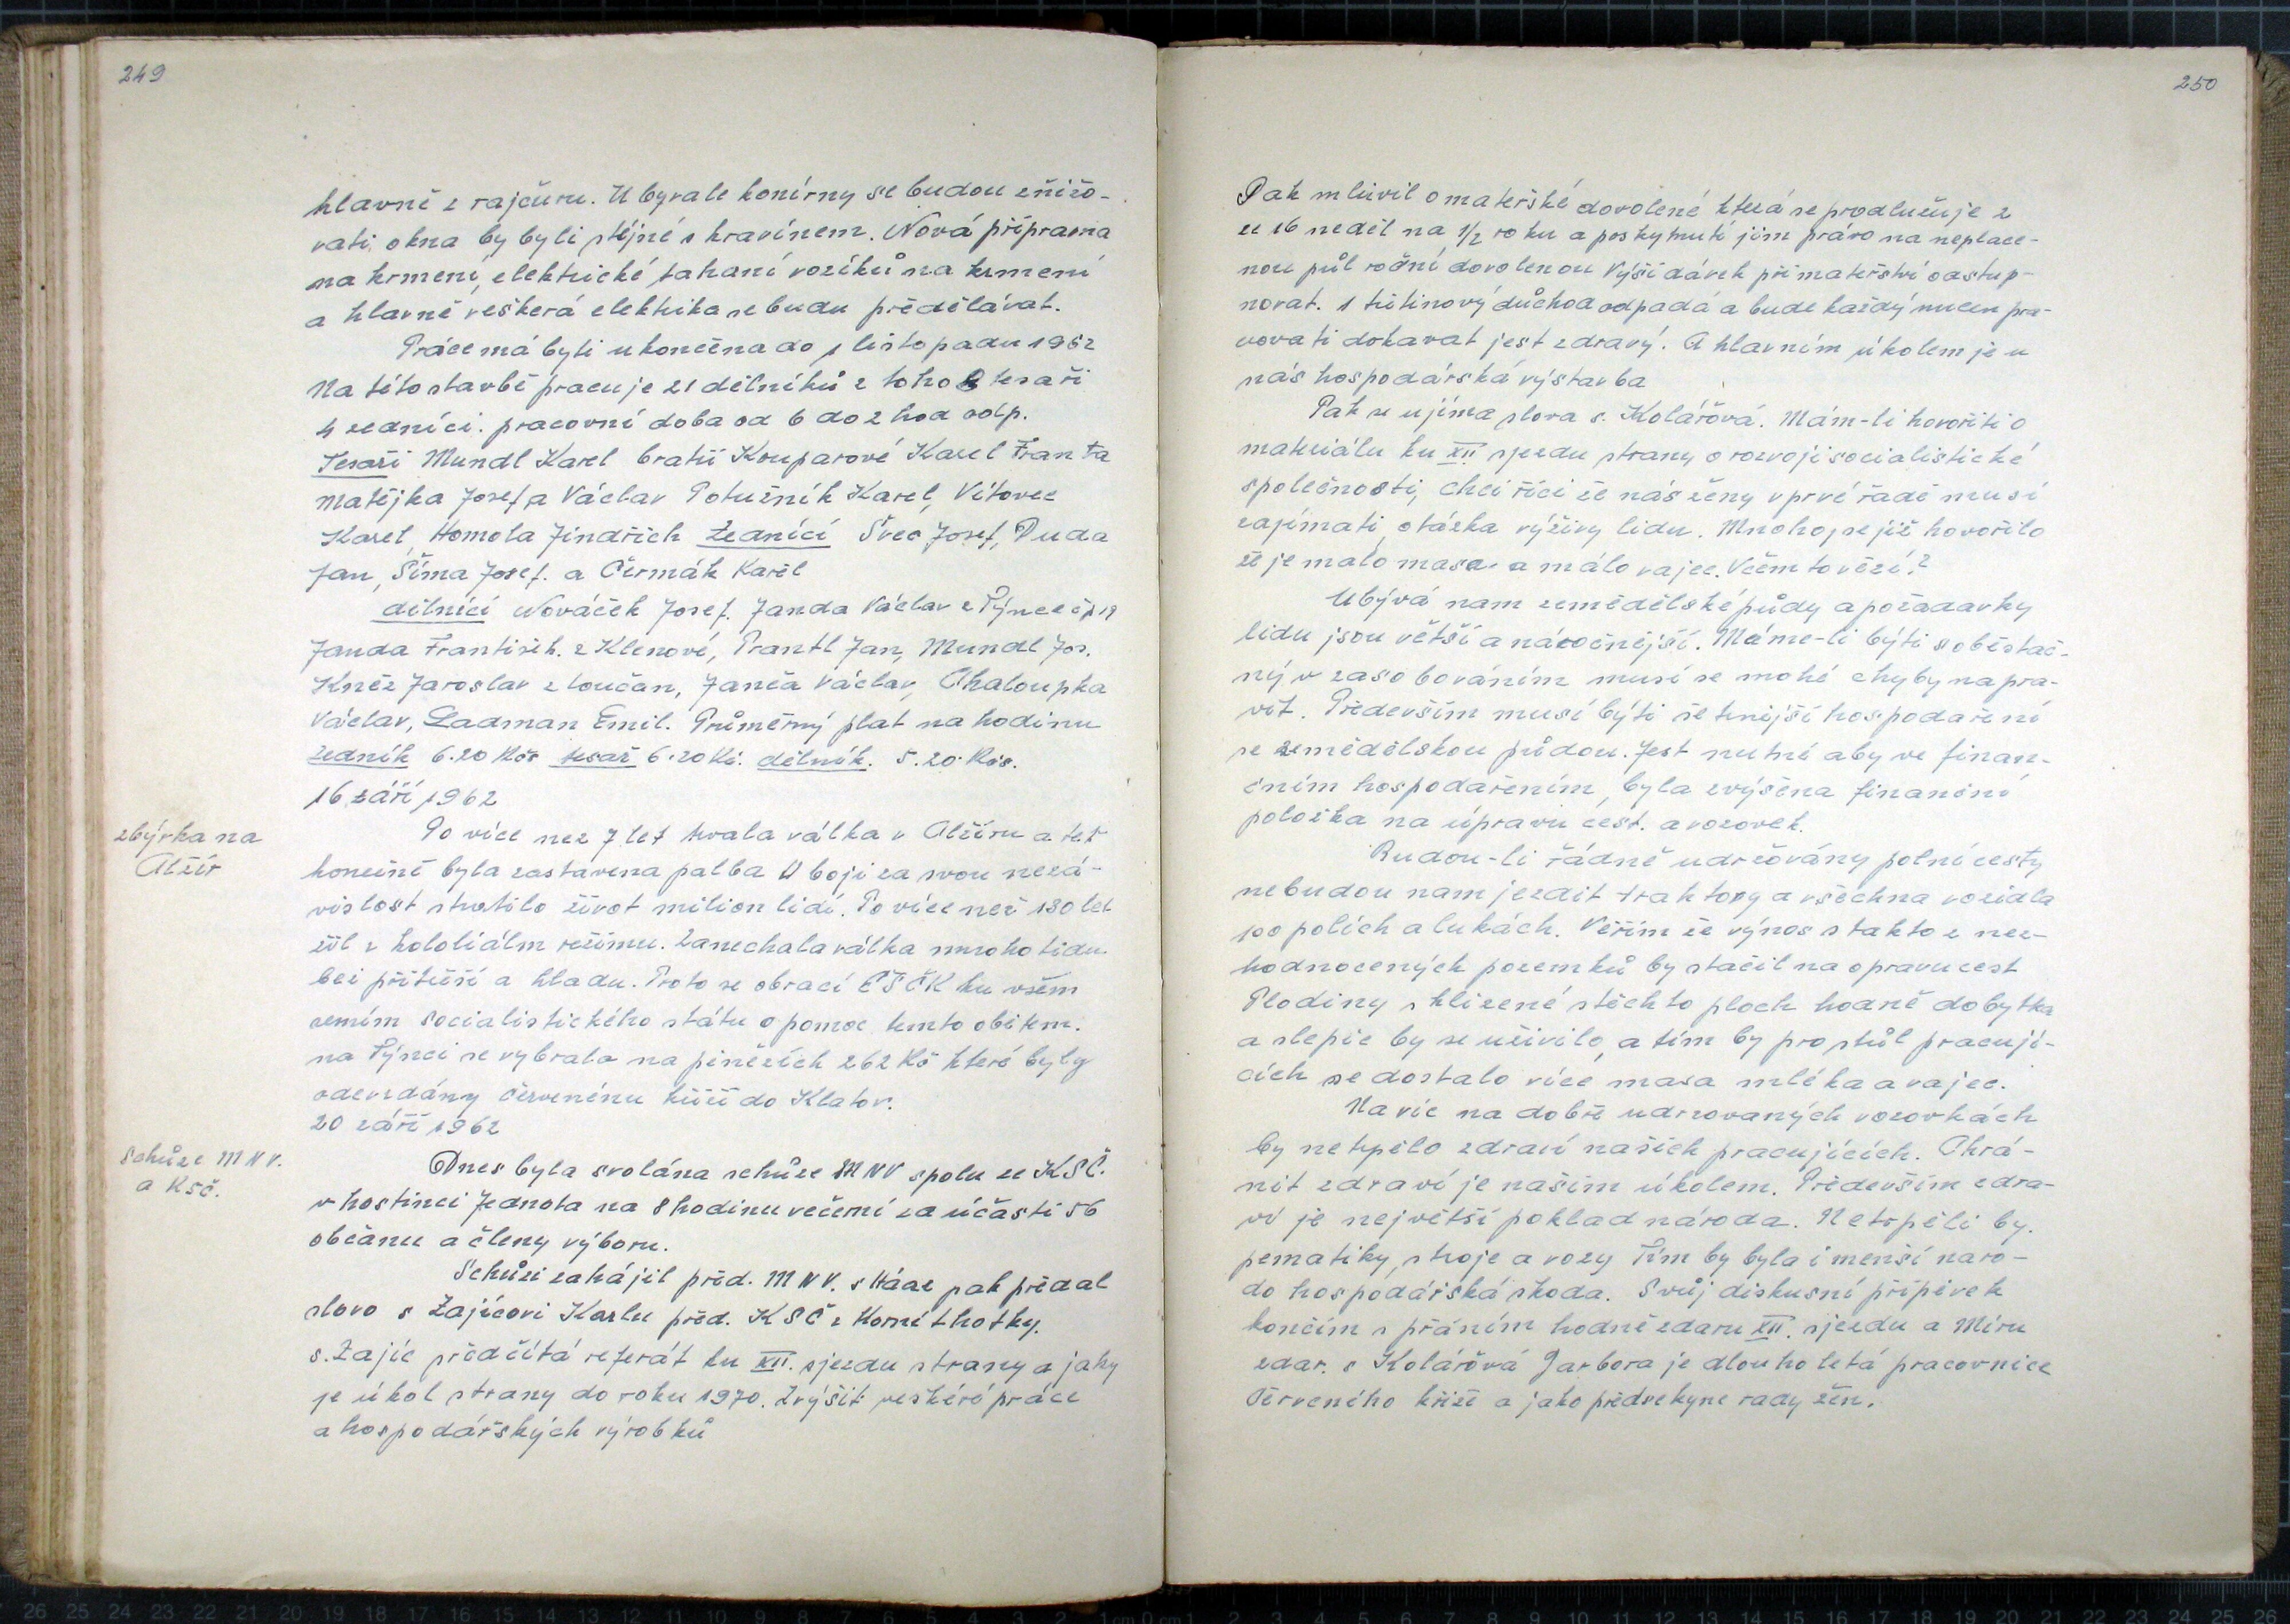 249
hlavně z rajčuru. U byvale konírny se budou znižo-
vati okna by byli stéjné s kravínem. Nová přípravna
na krmení, elektrické tahaní vozíků na krmení
a hlavně veškerá elektrika se budu předělávat.
Práce má byti ukončena do 1 listopadu 1962
Na této stavbě pracuje 21 dělníků z toho 8 tesaři
4 zedníci. pracovní doba od 6 do 2 hod odp.
Tesaři Mundl Karel bratři Kouparové Karel Franta
Matějka Josef, a Václav Potužník Karel, Vítovec
Karel, Homola Jindřich Zedníci Švec Josef, Duda
Jan, Šíma Josef. a Čermák Karel
dělníci Nováček Josef. Janda Václav z Týnce čp 19
Janda František. z Klenové, Prantl Jan, Mundl Jos.
Kněz Jaroslav z Loučan, Janča Václav, Chaloupka
Václav, Ladman Emil. Průměrný plat na hodinu
zedník 6.20 Kčs tesař 6.20 Kč. dělník. 5.20 Kčs.
16 září 1962
zbýrka na
Alžír
Po více nez 7 let trvala válka v Alžíru a teť
konečně byla zastavena palba V boji za svou nezá-
vislost stratilo život milion lidí. Po více než 130 let
žil v kololiálm režimu. Zanechala válka mnoho lidu
bez přístřeší a hladu. Proto se obrací ČSČK ku všem
zemím socialistického státu o pomoc temto obětem.
na Týnci se vybralo na penězích 262 Kč které byly
odevzdány červenému kříži do Klatov.
20 září 1962
Schůze MNV.
a KSČ.
Dnes byla svolána schůze MNV spolu ze KSČ.
v hostinci Jednota na 8 hodinu večerní za účasti 56
občanu a členy výboru.
Schůzi zahájil před. MNV. s Háaz pak předal
slovo s Zajícovi Karlu před. KSČ z Horní Lhotky.
s. Zajíc předčítá referát ku XII. sjezdu strany a jaky
je úkol strany do roku 1970. Zvýšit veškeré práce
a hospodářských výrobků
250
Pak mluvil o mateřské dovolené která se prodlužuje z
ze 16 neděl na 1/2 roku a poskytnutí jim právo na neplace-
nou půl roční dovolenou Výši dávek při mateřství odstup-
novat. 1 třetinový důchod odpadá a bude každý nucen pra-
covati dokavat jest zdravý. A hlavním úkolem je u
nás hospodářská výstavba
Pak se ujíma slova s. Kolářová. Mám-li hovořiti o
materiálu ku XII sjezdu strany o rozvoji socialistické
společnosti, chci říci že nás ženy v prvé řadě musí
zajímati otázka výživy lidu. Mnoho se již hovořilo
že je malo masa a málo vajec. Včem to vězí?
Ubývá nam zemědělské půdy a požadavky
lidu jsou větší a náročnější. Máme-li býti soběstač-
ný v zasobováním musí se mohé chyby napra-
vit. Předevšim musí býti šetrnější hospodaření
se zemědělskou půdou. Jest nutné aby ve finan-
čním hospodařením, byla zvýšena finanční
položka na úpravu cest. a vozovek.
Budou-li řádně udržovány polní cesty
nebudou nam jezdit traktory a všechna vozidla
po polích a lukách. Věřím že výnos s takto z nez-
hodnocených pozemků by stačil na opravu cest
Plodiny sklizené stěchto ploch hodně dobytka
a slepic by se uživilo, a tím by pro stůl pracují-
cích se dostalo více masa mléka a vajec.
Navíc na dobře udrzovaných vozovkách
by netrpělo zdraví našich pracujících. Chrá-
nit zdraví je naším úkolem. Předevšim zdra-
ví je největší poklad národa. Netrpěli by.
pematiky, stroje a vozy Tím by byla i menší naro-
do hospodářská skoda. Svůj diskusní přípěvek
končím s přáním hodně zdaru XII. sjezdu a Míru
zdar. s Kolářová Barbora je dlouho letá pracovnice
Červeného kříže a jako předvekyne rady žen.